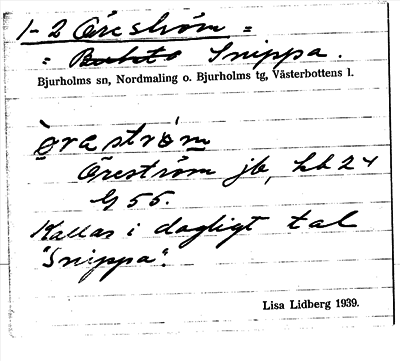 1-2 Öreström =
= Snippa.
Bjurholms sn, Nordmaling o. Bjurholms tg, Västerbottens l.
öraström
Öreström jb, hb 24
G 55.
Kallas i dagligt tal
"Snippa".
Lisa Lidberg 1939.